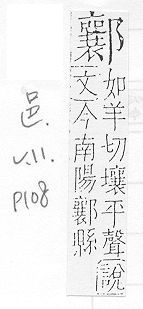 如羊切壤平聲說
文今南陽縣
邑.
v.11.
p108